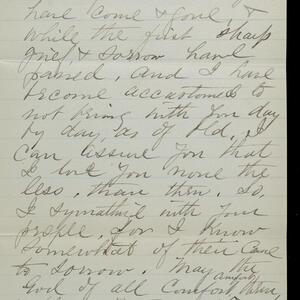 have come & gone, &
while the first sharp
grief, & sorrow have
passed, and I have
become accustomed to
not being with you day
by day, as of old, I
can assure you that
I love you none the
less, than then. So,
I sympathize with your
people, for I know
somewhat of their cause
to sorrow. May the
God of all Comfort,